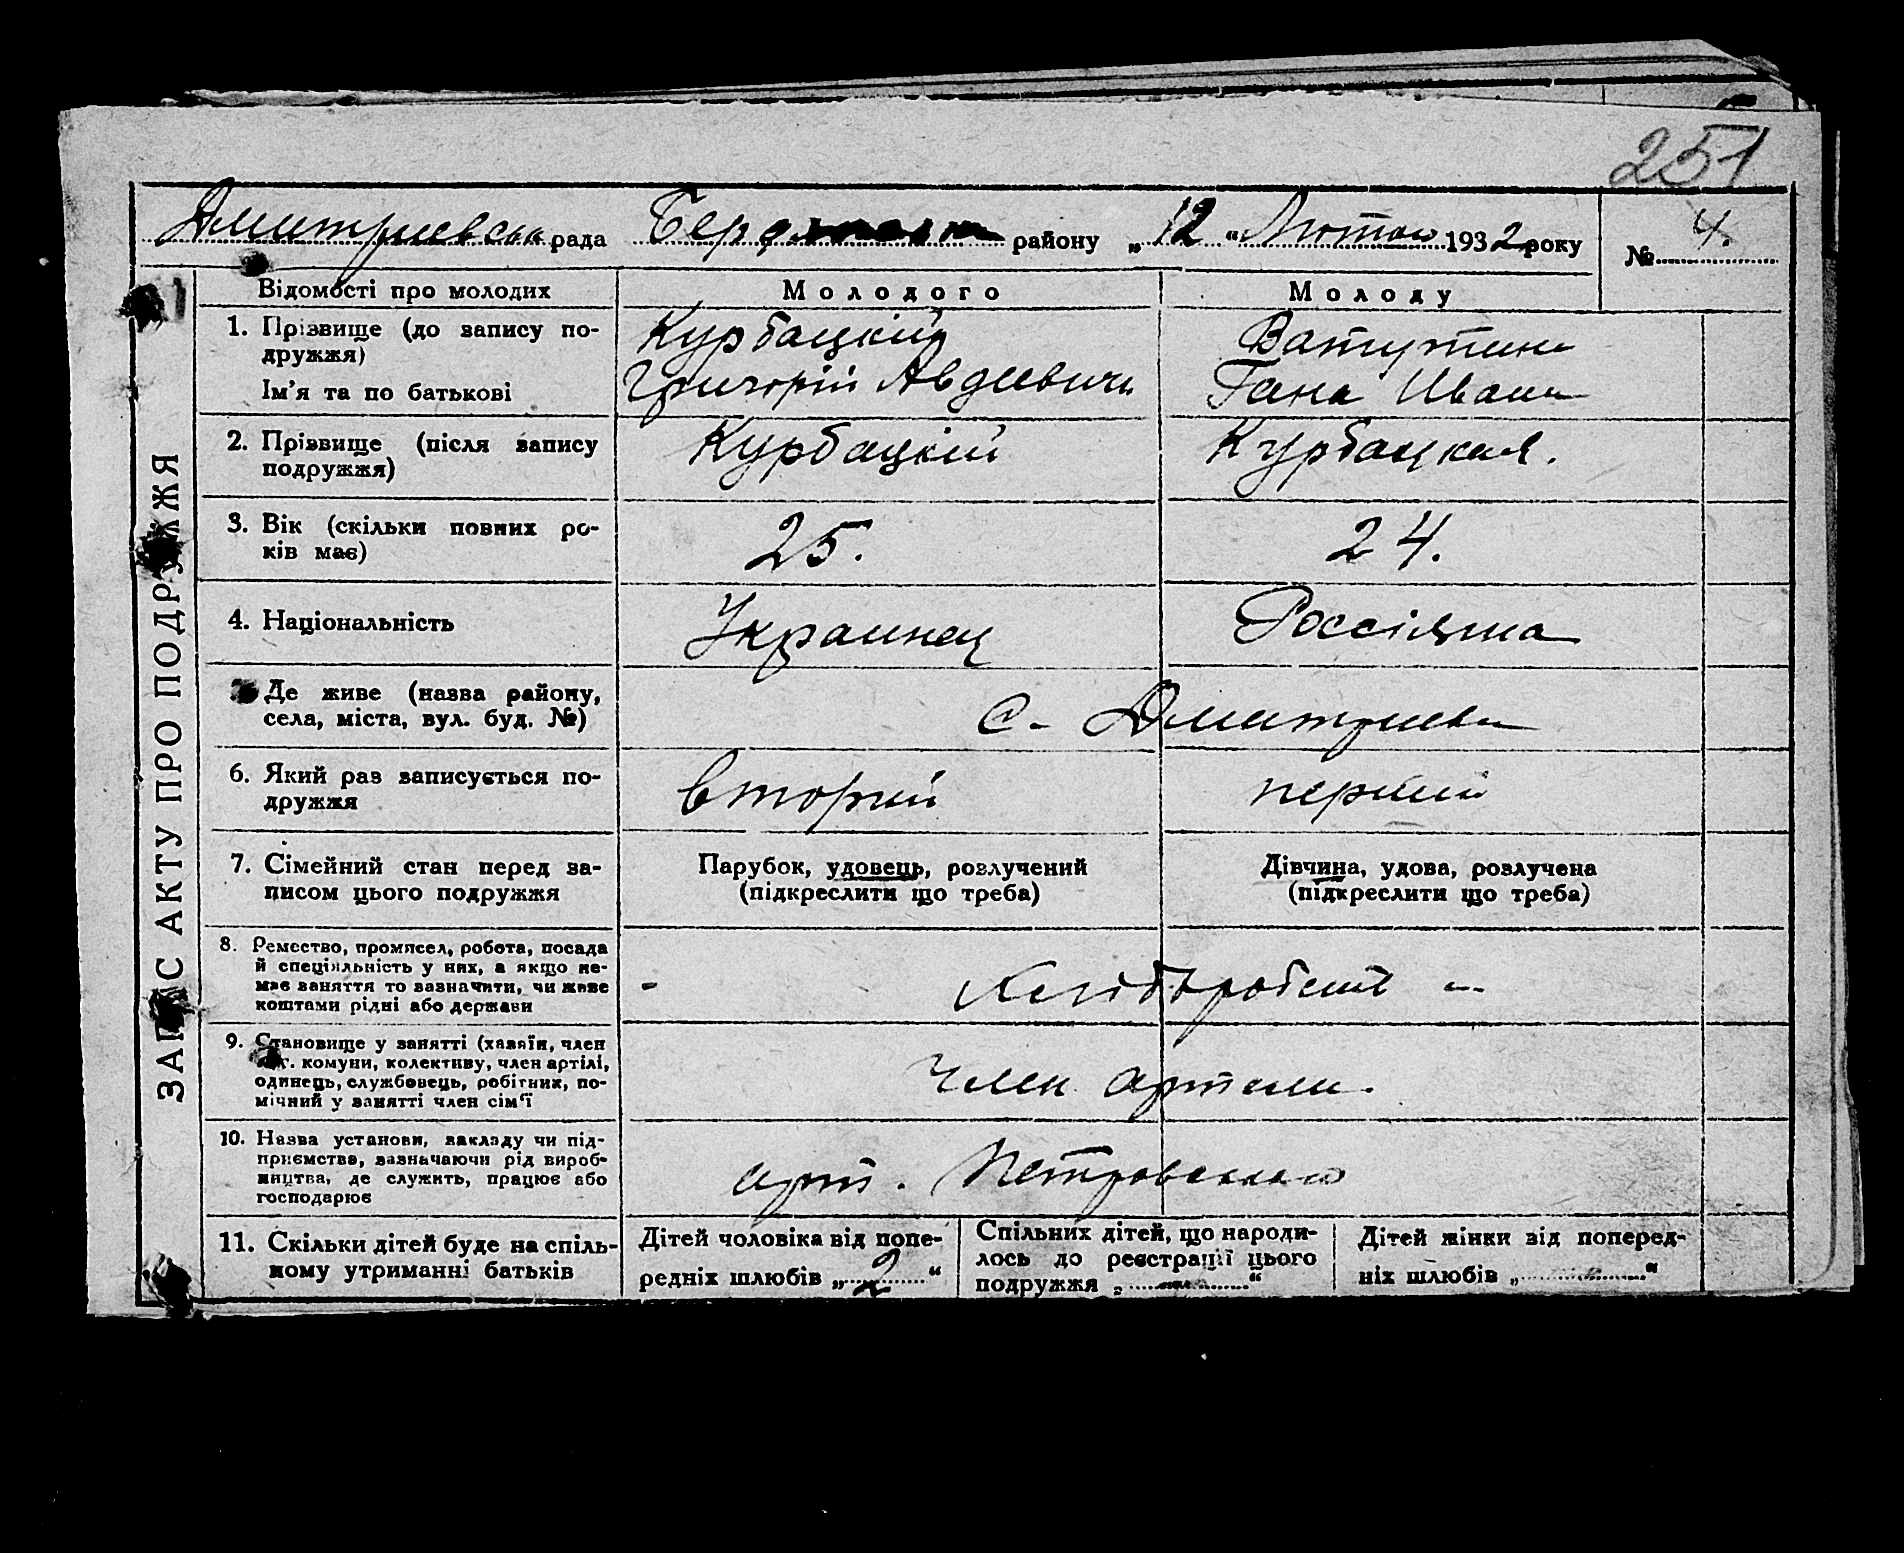 251
Дмитриевська рада Бердянського району „12“ Лютого 1932 року № 4.
ЗАПИС АКТУ ПРО ПОДРУЖЖЯ
Відомості про молодих
Молодого
Молоду
1. Прізвище (до запису по-
дружжя)
Ім'я та по батькові
Курбацкій
Григорій Авдеевичь
Ватутина
Гана Иван
2. Прізвище (після запису
подружжя)
Курбацкій
Курбацкая.
3. Вік (скільки повних ро-
ків має)
25.
24.
4. Національність
Украинец
Россіянка
Де живе (назва району,
села, міста, вул. буд. №)
с- Дмитриевка
6. Який раз записується по-
дружжя
вторий
перший
7. Сімейний стан перед за-
писом цього подружжя
Парубок, удовець, розлучений
(підкреслити що треба)
Дівчина, удова, розлучена
(підкреслити що треба)
8. Ремество, промисел, робота, посада
й спеціяльність у них, а якщо не-
має заняття то зазначити, чи живе
коштами рідні або держави
- Хліборобств -
9. Становище у занятті (хазяїн, член
комуни, колективу, член артілі,
одинець, службовець, робітник, по-
мічний у занятті член сім'ї
Член артели.
10. Назва установи, закладу чи під-
приємства, зазначаючи рід вироб-
ництва, де служить, працює або
господарює
арт. Петровського
11. Скільки дітей буде на спіль-
ному утриманні батьків
Дітей чоловіка від попе-
редніх шлюбів „2“
Спільних дітей, що народи-
лось до реєстрації цього
подружжя „ “
Дітей жінки від поперед-
ніх шлюбів „ “